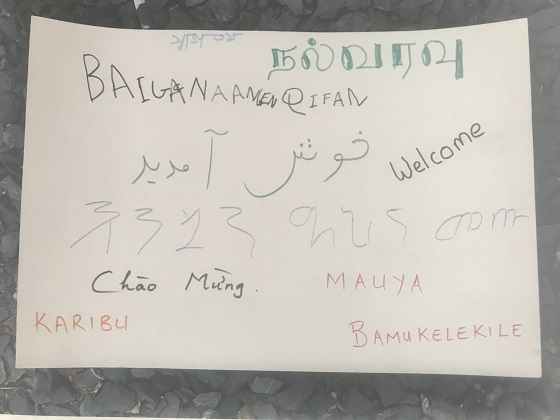 நல்வரவு
BAIGANAAMENQIFAN
خوش آمدید
Welcome
እንኳን ደህና መጡ
Chào Mừng.
MAUYA
KARIBU
BAMUKELEKILE